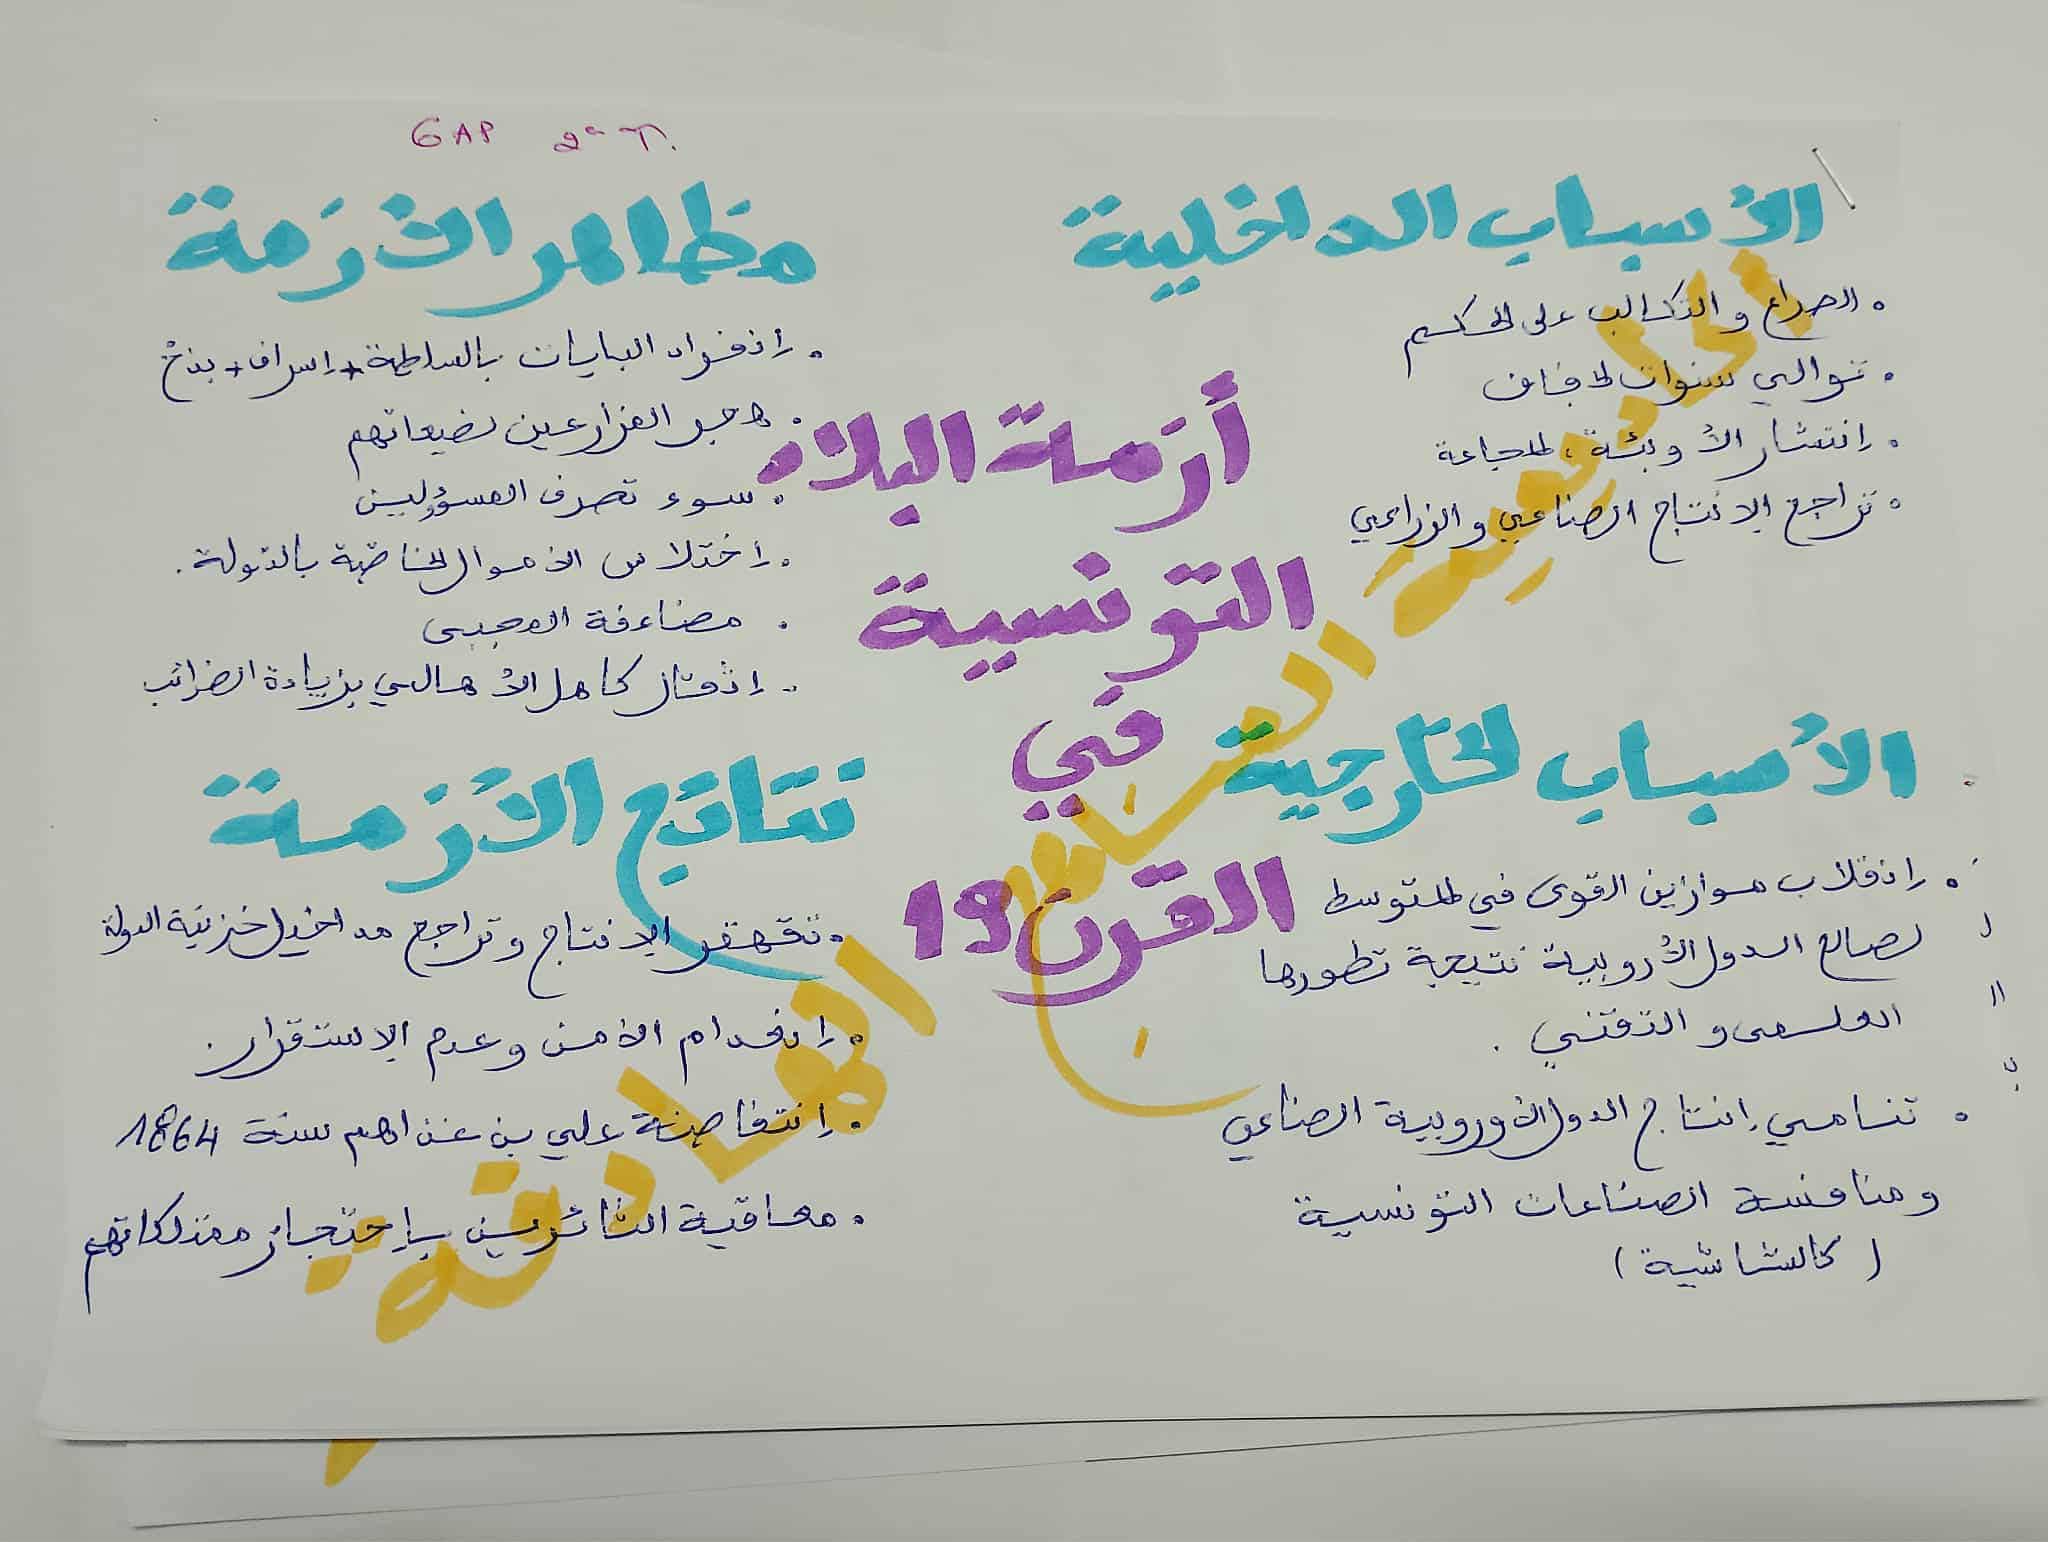 6 AP 2e T.
الأسباب الداخلية
• الصراع و التكالب على الحكم
• توالي سنوات الجفاف
• إنتشار الأوبئة ، المجاعة
• تراجع الإنتاج الصناعي و الزراعي
الأسباب الخارجية
• إنقلاب موازين القوى في المتوسط
لصالح الدول الأروبية نتيجة تطورها
العلمي و التقني .
• تنامي إنتاج الدول الأوروبية الصناعي
و منافسة الصناعات التونسية
( كالشاشية )
أزمة البلاد
التونسية
في
القرن 19
مظاهر الأزمة
• إنفراد البايات بالسلطة + إسراف + بذخ
• هجر المزارعين لضيعاتهم
• سوء تصرف المسؤولين
• إختلاس الأموال الخاصة بالدولة .
• مضاعفة المجبى
• إثقال كاهل الأهالي بزيادة الضرائب
نتائج الأزمة
• تقهقر الإنتاج و تراجع مداخيل خزينة الدولة
• إنعدام الأمن و عدم الإستقرار
• إنتفاضة علي بن غذاهم سنة 1864
• معاقبة الثائرين بإحتجاز ممتلكاتهم
الناشطة